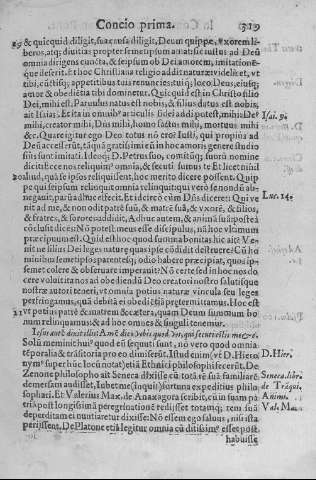 Concio prima. 319
& quicquid diligit, sua causa diligit, Deum quippe, vxorem li-
beros, atq; diuitias: propter semetipsum
omnia dirigens cuncta, & seipsum ob Dei amorem, imitationē-
que deserit. Et hoc Christiana religio addit naturæ: videlicet, vt
tibi, cūctisq; appetitibus tuis renuncies: tuiq; loco Deus, eiusq;
amor & obedientia tibi dominetur. Quicquid est in Christo filio
Dei, mihi est. Paruulus natus est nobis, & filius datus est nobis,
ait Isaias. Et ita in omnibꝰ articulis fidei addi potest, mihi: Deꝰ
mihi, creator mihi, Dñs mihi, homo factus mihi, mortuus mihi
&c. Quare igitur ego Deo totus nō ero? Iusti, qui propius ad
Deū accesserūt, tāquā gratissimi eum in hoc amoris genere studio
sius sunt imitati. Ideoq; D. Petrus suo, comitūq; suorū nomine
dicit: Ecce nos reliquimꝰ omnia, & secuti sumus te. Et licet nihil
20 aliud, quā se ipsos reliquissent, hoc merito dicere possent. Quip
pe qui seipsum reliquit omnia reliquit: qui verò se non dū ab-
negauit, parū adhuc effecit. Et idcircò cùm Dñs diceret: Qui ve
nit ad me, & non odit patrē suū, & matrē suā, & vxorē, & filios,
& fratres, & sorores: addidit, Adhuc autem, & animā suā: postea
cōclusit dices: Nō potest meus esse discipulus, nā hoc vltimum
præcipuum est. Quid est hoc quod summa bonitas hic ait? Ve-
nit ne filius Dei leges naturæ quas ipse cōdidit destruere? Cū ho
minibus semetipsos parentesq; odio habere præcipiat, quos ip-
semet colere & obseruare imperauit? Nō certè sed in hoc nos do
cere voluit: tanos ad obediendū Deo creatori nostro salutisque
nostræ autori teneri, vt omnia potius naturæ vincula seu leges
perfringamus, quā debitā ei obedientiā prætermittamus. Hoc est
21 vt potius patrē & matrem &cæterꝰ, quam Deum summum bo-
num relinquamus: & ad hoc omnes & singuli tenemur.
Solū meminit huiꝰ quod eū sequuti sunt, nō vero quod omnia
tēporalia & trāsitoria pro eo dimiserūt. Istud enim (vt D. Hiero
nymꝰ super hūc locū notat) etiā Ethnici philosophi fecerūt. De
Zenone philosopho ait Seneca dixisse cū totā rē suā familiarē
demersam audisset, Iubet me (inquit) fortuna expeditius philo
sophari. Et Valerius Max. de Anaxagora scribit, cū in suam pa
tria post longissimā peregrinationē redisset totamq; rem suā
deperditam ei nuntiaretur dixisse: Nō essem ego saluus, nisi ista
perijssent. De Platone etiā legitur omnia cū ditissimꝰ esset post
habuisse
Isai. 9.
Luc. 14.
D. Hier.
Seneca. libr.
de Trāqui.
Animi.
Val. Max.